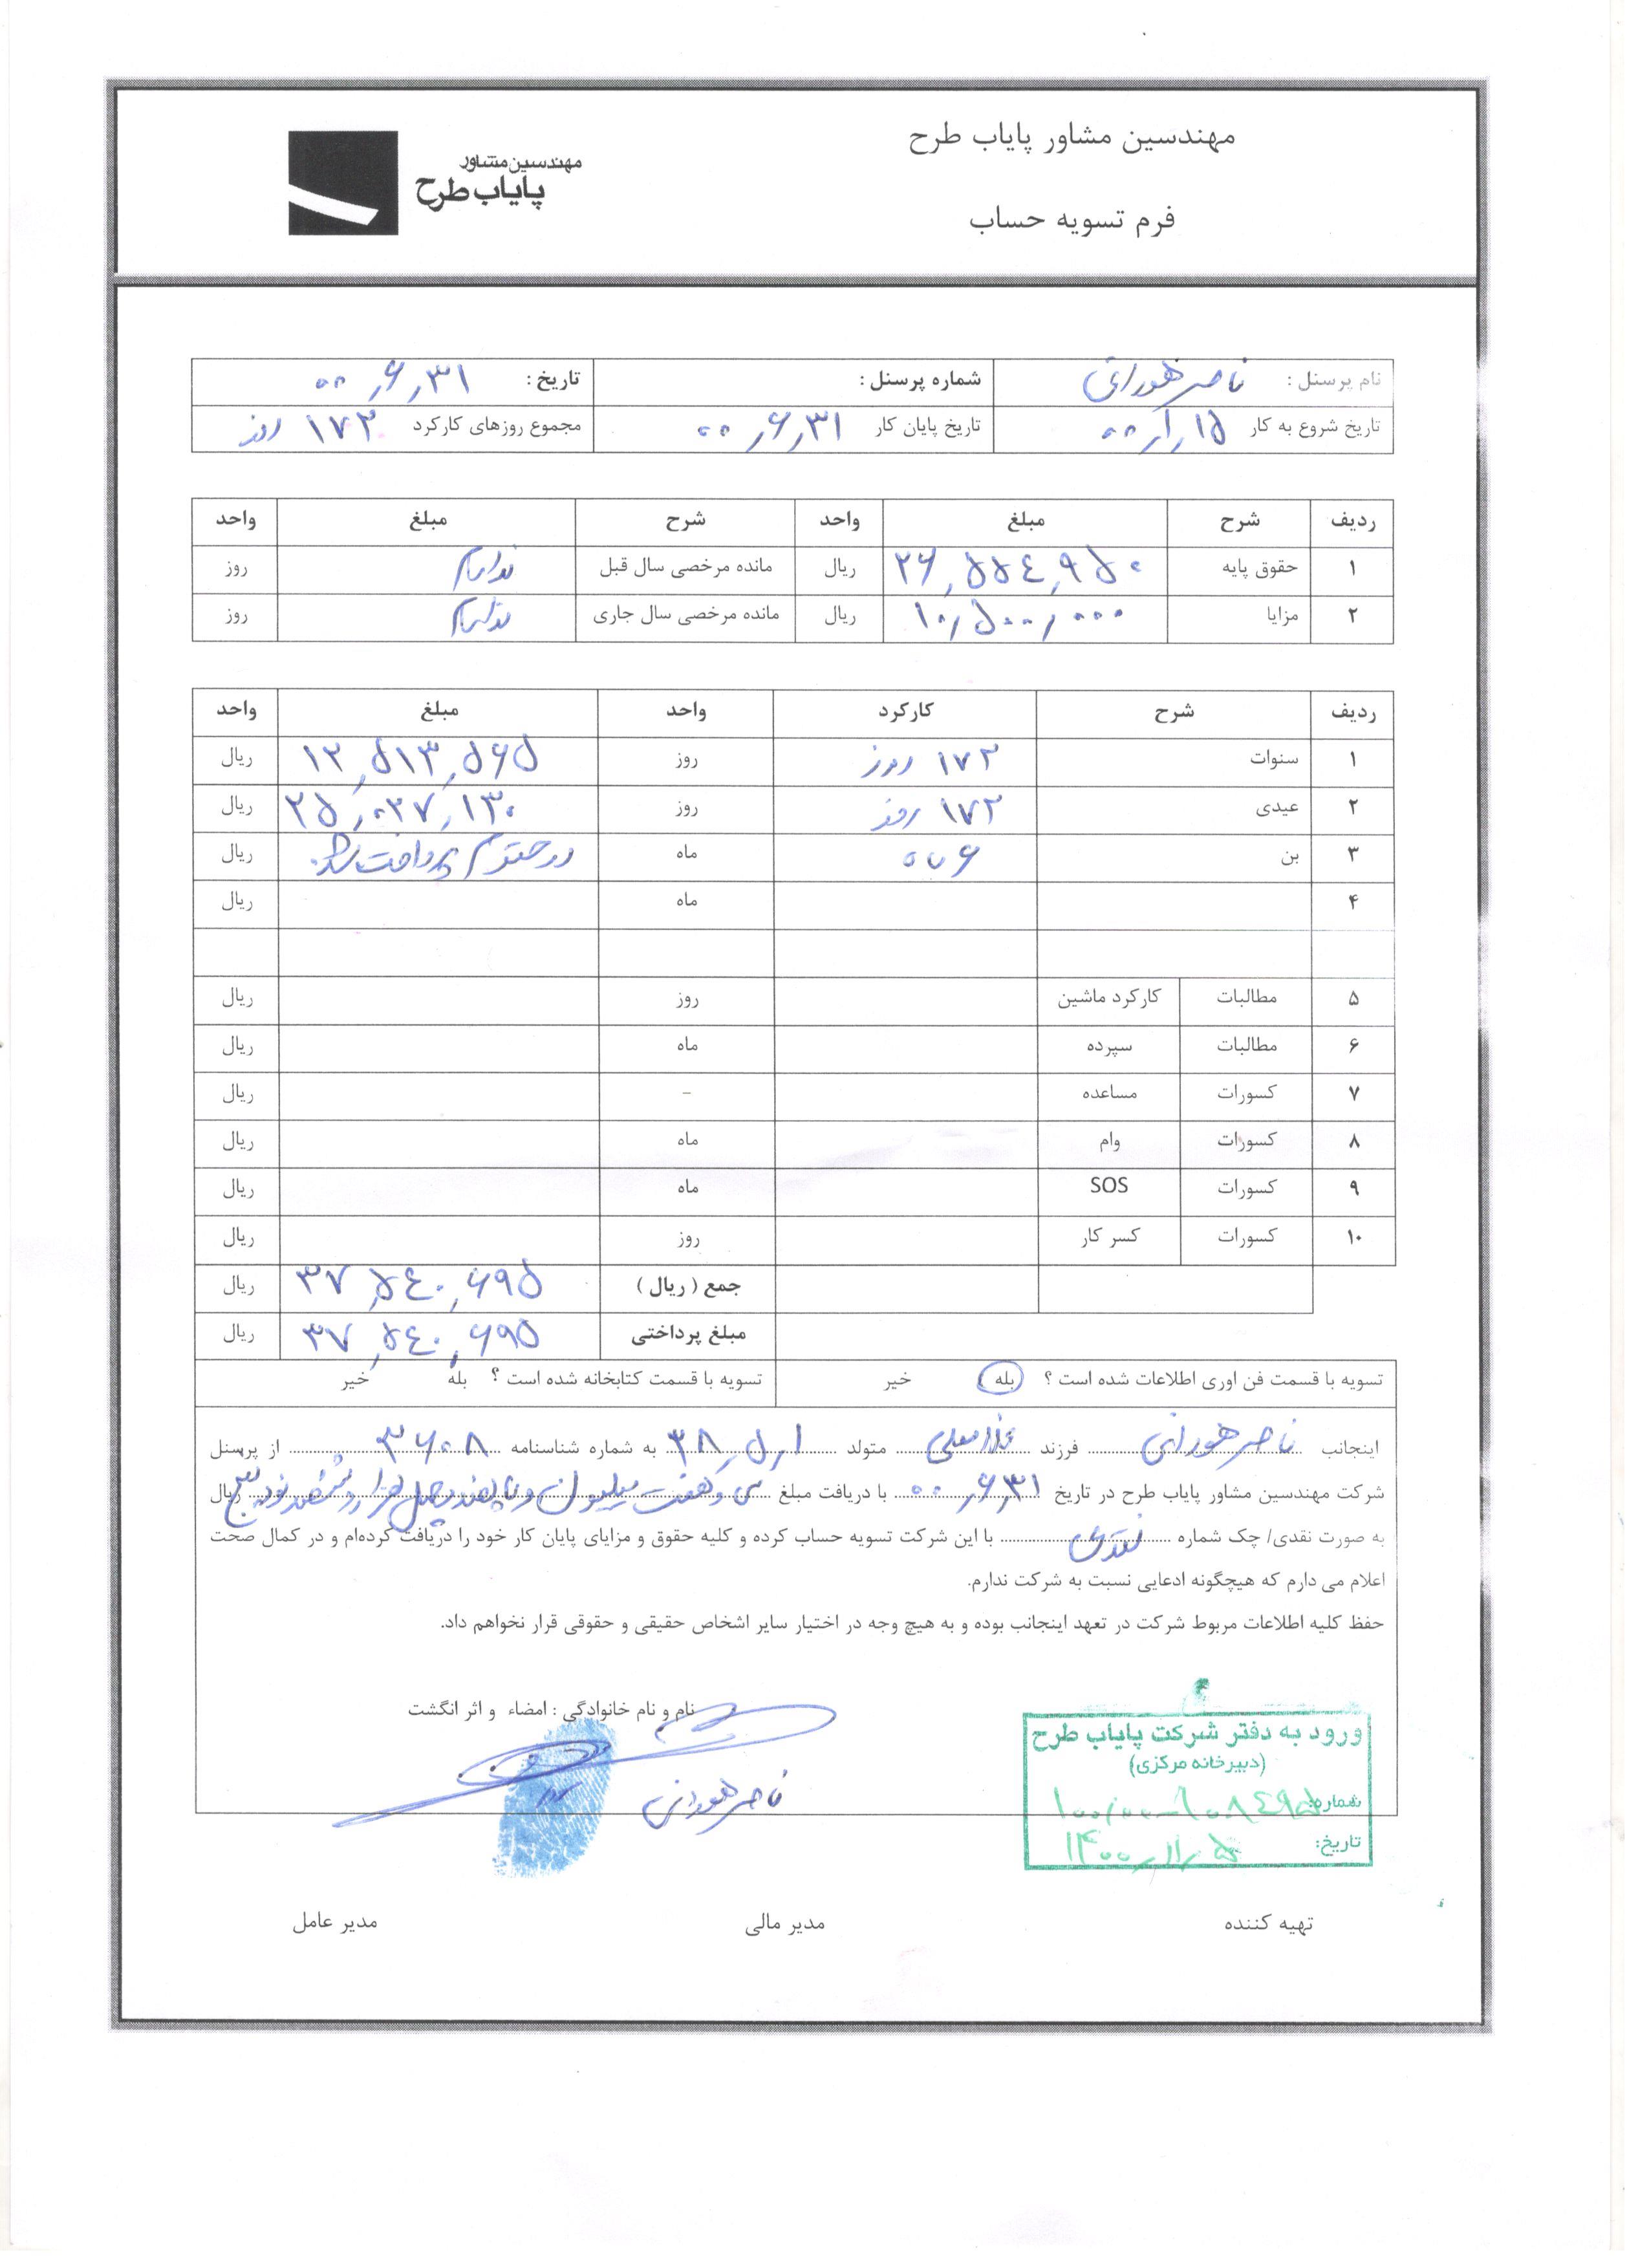 مهندسین مشاور پایاب طرح
مهندسین مشاور
پایاب طرح
فرم تسویه حساب
نام پرسنل : ناصر هورانی شماره پرسنل : تاریخ : ۰۰,۶,۳۱
تاریخ شروع به کار ۰۰,۱,۱۵ تاریخ پایان کار ۰۰,۶,۳۱ مجموع روزهای کارکرد ۱۷۲ روز
ردیف شرح مبلغ واحد شرح مبلغ واحد
۱ حقوق پایه ۲۶,۵۵٤,۹۵۰ ریال مانده مرخصی سال قبل ندارم روز
۲ مزایا ۱۰,۵۰۰,۰۰۰ ریال مانده مرخصی سال جاری ندارم روز
ردیف شرح کارکرد واحد مبلغ واحد
۱ سنوات ۱۷۲ روز روز ۱۲,۵۱۳,۵۶۵ ریال
۲ عیدی ۱۷۲ روز روز ۲۵,۰۲۷,۱۳۰ ریال
۳ بن ماه در حقوق پرداخت شد. ریال
۴ ماه ریال
۵ مطالبات کارکرد ماشین روز ریال
۶ مطالبات سپرده ماه ریال
۷ کسورات مساعده - ریال
۸ کسورات وام ماه ریال
۹ کسورات SOS ماه ریال
۱۰ کسورات کسر کار روز ریال
جمع ( ریال ) ۳۷,۵٤۰,۶۹۵ ریال
مبلغ پرداختی ۳۷,۵٤۰,۶۹۵ ریال
تسویه با قسمت فن اوری اطلاعات شده است ؟ بله خیر تسویه با قسمت کتابخانه شده است ؟ بله خیر
اینجانب ناصر هورانی فرزند غلامعلی متولد ۳۸,۵,۱ به شماره شناسنامه ۳۶۰۸ از پرسنل
شرکت مهندسین مشاور پایاب طرح در تاریخ ۰۰,۶,۳۱ با دریافت مبلغ سی و هفت میلیون و پانصد و چهل هزار و ششصد نود و پنج ریال
به صورت نقدی/ چک شماره نقدی با این شرکت تسویه حساب کرده و کلیه حقوق و مزایای پایان کار خود را دریافت کرده‌ام و در کمال صحت
اعلام می دارم که هیچگونه ادعایی نسبت به شرکت ندارم.
حفظ کلیه اطلاعات مربوط شرکت در تعهد اینجانب بوده و به هیچ وجه در اختیار سایر اشخاص حقیقی و حقوقی قرار نخواهم داد.
نام و نام خانوادگی : امضاء و اثر انگشت
ناصر هورانی
ورود به دفتر شرکت پایاب طرح
(دبیرخانه مرکزی)
شماره:
تاریخ: ۱۴۰۰,۱۱,۰۵
تهیه کننده مدیر مالی مدیر عامل